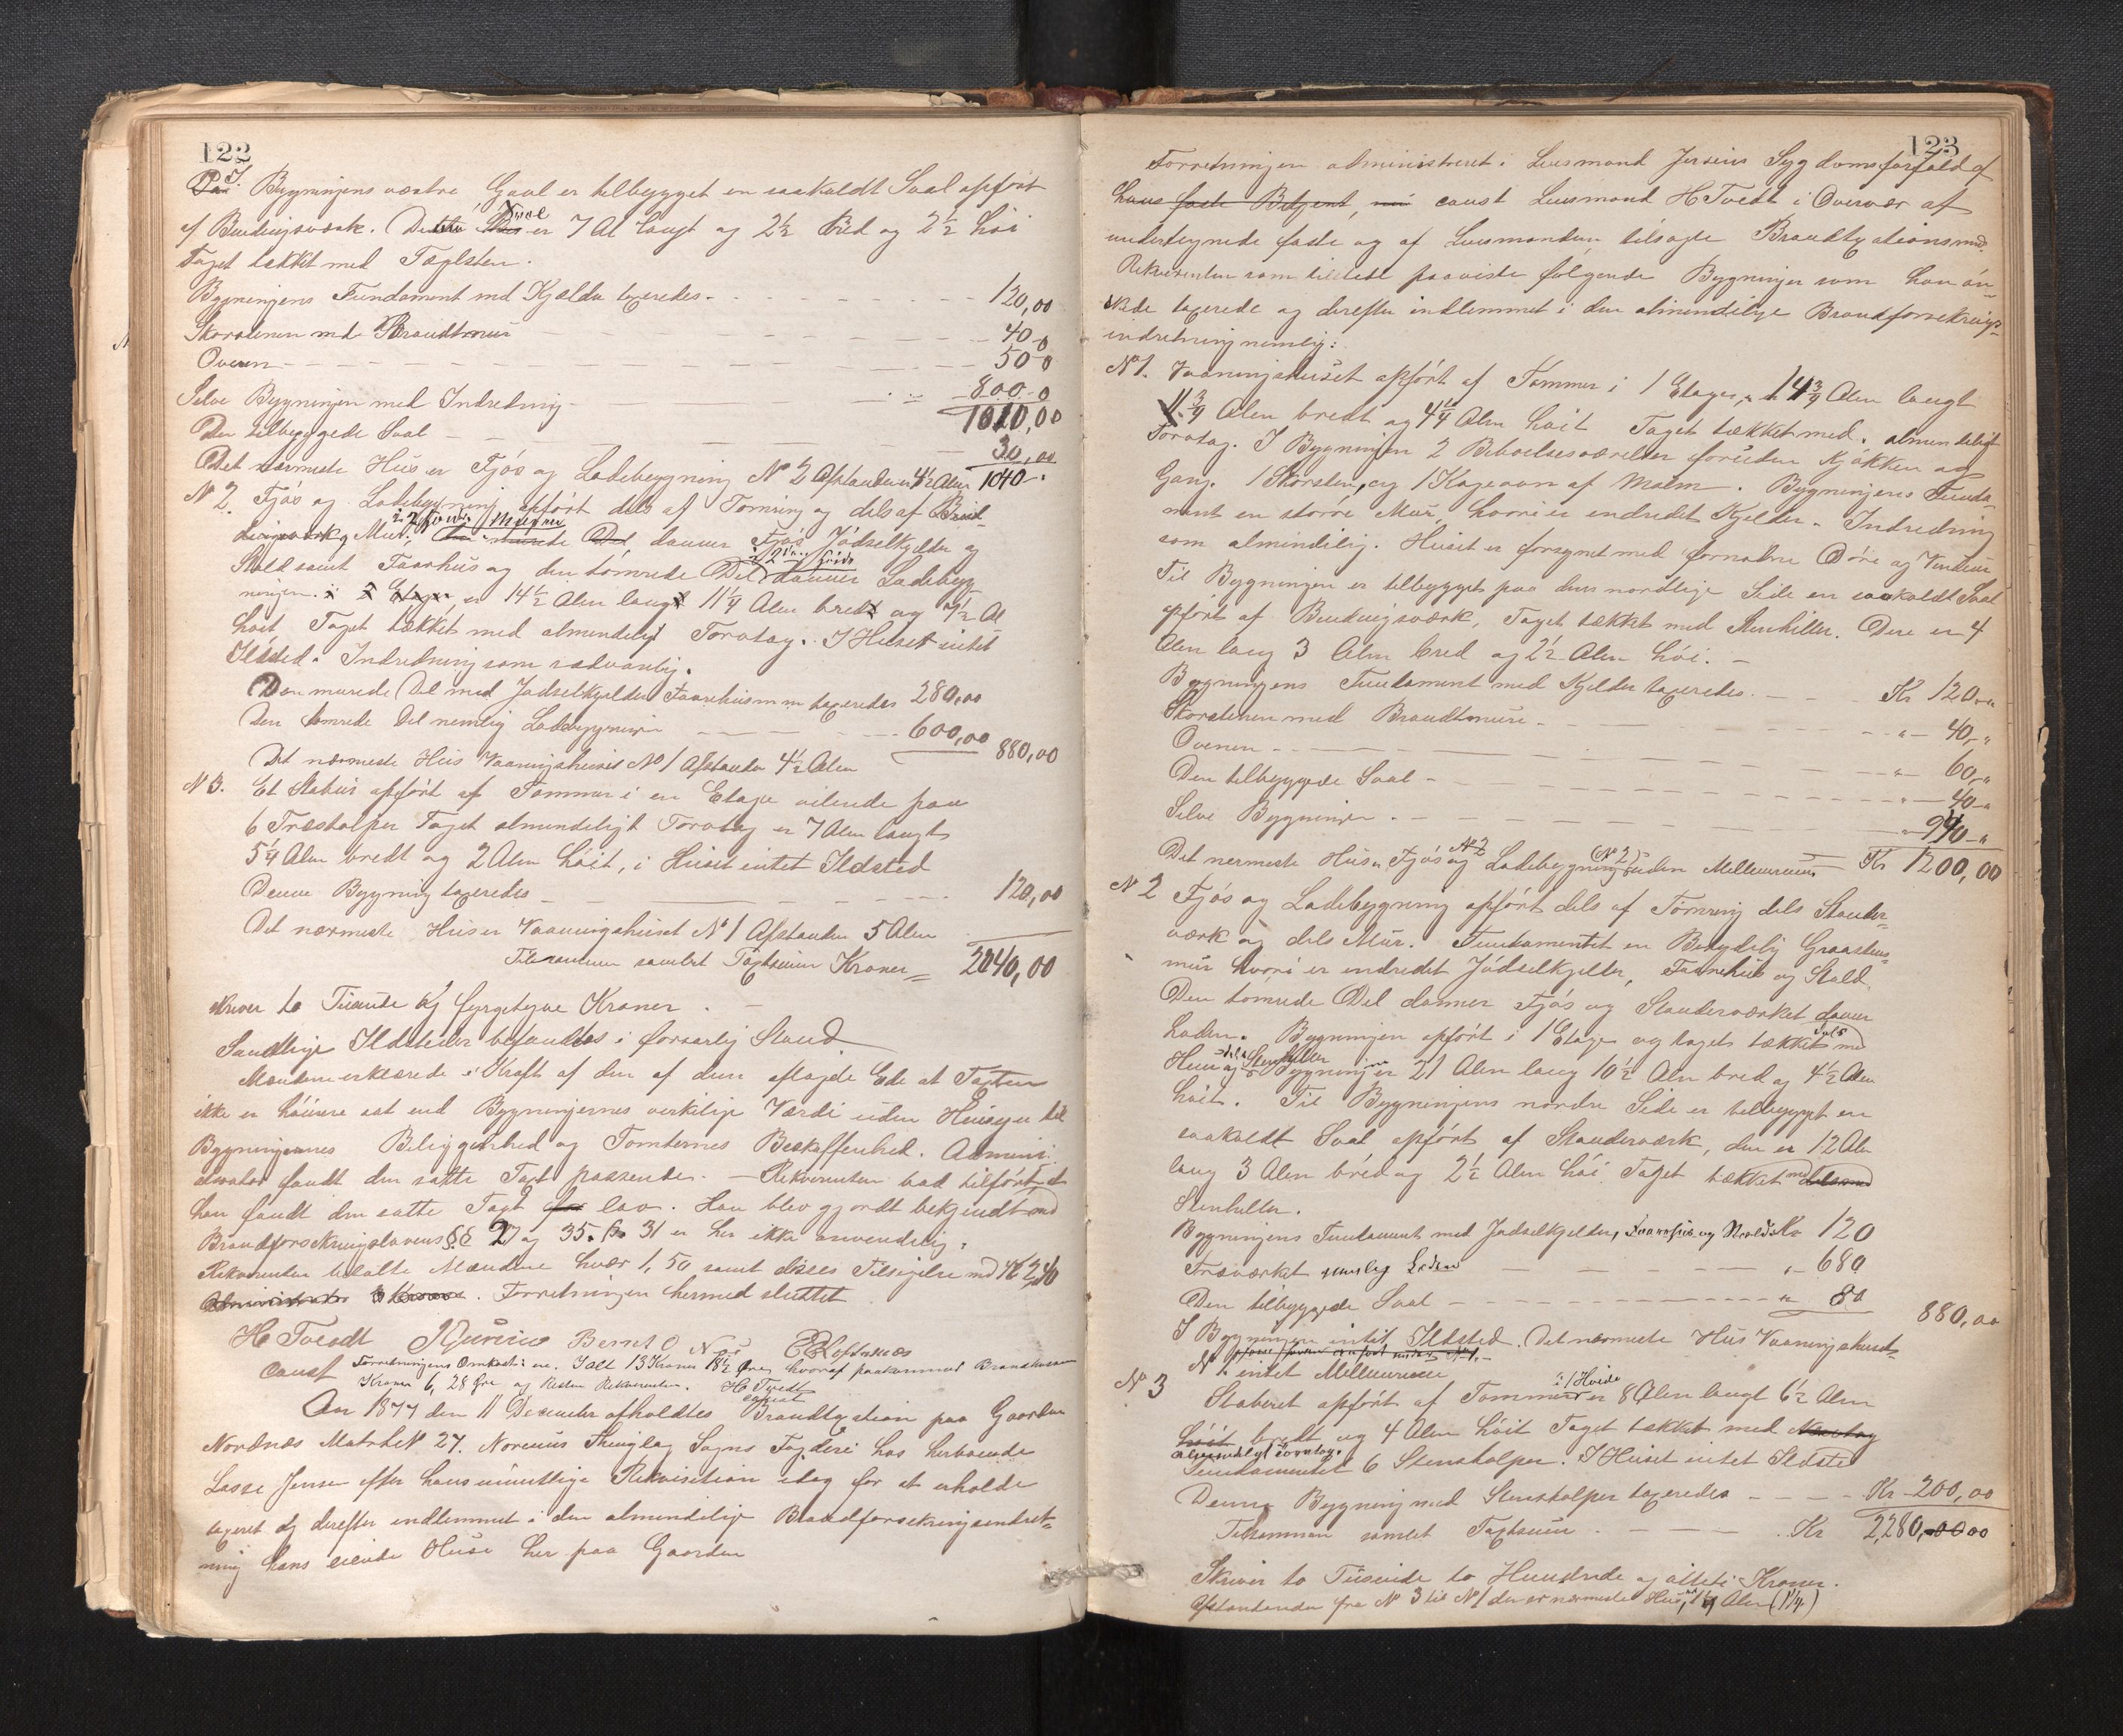 122
I Bygningens vestre Gavl er tilbygget en saakaldt Sval opført
af Bindingsværk. Denne Sval er 7 Al langt og 2½ Bred og 2½ høi
Taget tækket med Taglsten.
Bygningens Fundament med Kjælder taxeredes 120,00
Skorstenen med Brandtmur 40-0
Ovenen 50-0
Selve Bygningen med Indredning 800-0
1010,00
Den tilbyggede Sval 30,00
Det nærmeste Hus er Fjøs og Ladebygning No 2 Afstanden 4½ Alen 1040-
N 2. Fjøs og Ladebygning opført dels af Tømring og dels af Bind-
dingsværk og Mur, danner Fjøs Jødselkjelder og
Stald samt Faarhus og den tømrede Del danner Ladebyg-
ningen. er 14½ Alen lang 11¼ Alen bred og 7½ Al
høit Taget tækket med almindeligt Torvtag. I Huset intet
Ildsted. Indredning som sædvanlig.
Den murede Del med Jødselkjelder Faarehus m m taxeredes 280,00
Den tømrede Del nemlig Ladebygningen 600,00 880,00
Det nærmeste Hus Vaaningshuset No 1 Afstanden 4½ Alen
N 3. Et Stabur opført af Tømmer i en Etage hvilende paa
6 Træstolper Taget almindeligt Torvtag er 7 Alen langt
5¼ Alen bredt og 2 Alen høit, i Huset intet Ildsted
Denne Bygning taxeredes 120,00
Det nærmeste Hus er Vaaningshuset No 1 Afstanden 5 Alen
Tilsammen samlet Taxtsum Kroner 2040,00
skriver to Tusinde og fyrgetyve Kroner.
Samtlige Ildsteder befandtes i forsvarlig Stand
Mændene erklærede i Kraft af den af dem aflagde Ed at Taxten
ikke er høiere sat end Bygningernes virkelige Værdi uden Hensyn til
Bygningernes Beliggenhed og Tomternes Beskaffenhed. Admini-
strator fandt den satte Taxt passende. — Rekvirenten bad tilført at
han fandt den satte Taxt lav. Han blev gjordt bekjendt med
Brandforsikringslovens §§ 27 og 35. § 31 er her ikke anvendelig.
Rekvirenten betalte Mændene hver 1,50 samt disses Tilsigelse med Kr 2,40
Forretningen hermed sluttet
H Tvedt Bernt O Næs
const Forretningens Omkost: ere. Ialt 13 Kroner 18½ Øre, hvoraf paakommer Brandkassen
Kroner 6, 28 Øre og Resten Rekvirenten. H Tvedt
const
Aar 1877 den 11 December afholdtes Brandtaxtion paa Gaarden
Nordnæs Matr. No 27. Thinglag Sogns Fogderi hos herboende
Lasse Jensen efter hans mundtlige Rekvisition idag for at erholde
taxeret og derefter indlemmet i den almindelige Brandforsikringsindret-
ning hans eiende Huse her paa Gaarden
123
Forretningen administreret i Lensmand Sygdomsforfald af
const Lensmand H Tvedt i Overvær af
undertegnede faste og af Lensmanden tilsagte Brandtaxtionsmænd
Rekvirenten som tilstede paaviste følgende Bygninger som han øn-
skede taxerede og derefter indlemmet i den almindelige Brandforsikrings-
indretning nemlig:
No 1. Vaaningshuset opført af Tømmer i 1 Etage, er 14¾ Alen langt
11¾ Alen bredt og 4¼ Alen høit Taget tækket med almindeligt
Torvtag. I Bygningen 2 Beboelsesværelser foruden Kjøkken og
Gang. 1 Skorsten, og 1 Kogeovn af Malm. Bygningens Funda-
ment en større Mur, hvori er indredet Kjelder. Indredning
som almindelig. Huset er forsynet med fornødne Døre og Vinduer
Til Bygningen er tilbygget paa dens nordlige Side en saakaldt Sval
opført af Bindingsværk, Taget tækket med Stenheller. Den er 4
Alen lang 3 Alen bred og 2½ Alen høi. —
Bygningens Fundament med Kjelder taxeredes Kr 120-"
Skorstenen med Brandtmur "- 40,-"
Ovenen "- 60,-"
Den tilbyggede Sval "- 40-"
Selve Bygningen "- 940-"
Det nermeste Hus er Fjøs og Ladebygning (No 2) uden Mellemrum Kr 1200,00
No 2 Fjøs og Ladebygning opført dels af Tømring dels Stender-
værk og dels Mur. Fundamentet en Betydelig Graastens-
mur hvori er indredet Jødselkjelder, Faarehus og Stald
Den tømrede Del danner Fjøs og Stenderværket danner
Laden. Bygningen opført i 1 Etage og taget tækket dels med
Hun og dels Stenheller Bygningen er 21 Alen lang 10½ Alen bred og 4½ Alen
høit. Til Bygningens nordre Side er tilbygget en
saakaldt Sval opført af Stenderværk, den er 12 Alen
lang 3 Alen bred og 2½ Alen høi. Taget tækket med
Stenheller.
Bygningens Fundament med Jødselkjelder, Faarehus og Stald Kr 120
Træværket nemlig Laden "- 680
Den tilbyggede Sval " 80
880,00
I Bygningen intet Ildsted. Det nærmeste Hus Vaaningshuset
No 1 intet Mellemrum
No 3 Staburet opført af Tømmer i 1 Høide er 8 Alen langt 6½ Alen
bredt og 4 Alen høit Taget tækket med
almindeligt Torvtag.
Fundamentet 6 Stenstolper. I Huset intet Ildsted
Denne Bygning med Stenstolper taxeredes Kr 200,00
Tilsammen samlet Taxtsum Kr 2280,00
Skriver to Tusinde to Hundrede og otteti Kroner.
Afstanden fra No 3 til No 1 der er nærmeste Hus, er 1¼ Alen (1¼)